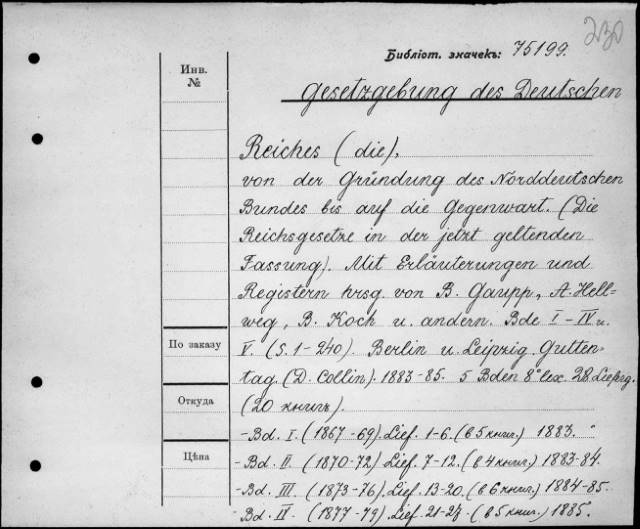 230
Библіот. значекъ: 75199.
Инв. №
Gesetzgebung des Deutschen
Reiches (die),
von der Gründung des Norddeutschen
Bundes bis auf die Gegenwart. (Die
Reichsgesetze in der jetzt geltenden
Fassung). Mit Erläuterungen und
Registern hrsg. von B. Gaupp, A. Hell-
weg, B. Koch u. andern. Bde I-IV u.
По заказу
V. (S. 1-240). Berlin u. Leipzig. Gutten-
tag. (D. Collin). 1883-85. 5 Bden 8° lex. 28 Liefrg.
Откуда
(20 книгъ).
-Bd. I. (1867-69). Lief. 1-6. (в 5 книг.) 1883.
Цѣна
-Bd. II. (1870-72) Lief. 7-12. (в 4 книг.) 1883-84.
-Bd. III. (1873-76) Lief. 13-20. (в 6 книг.) 1884-85.
-Bd. IV. (1877-79) Lief. 21-27. (в 5 книг.) 1885.